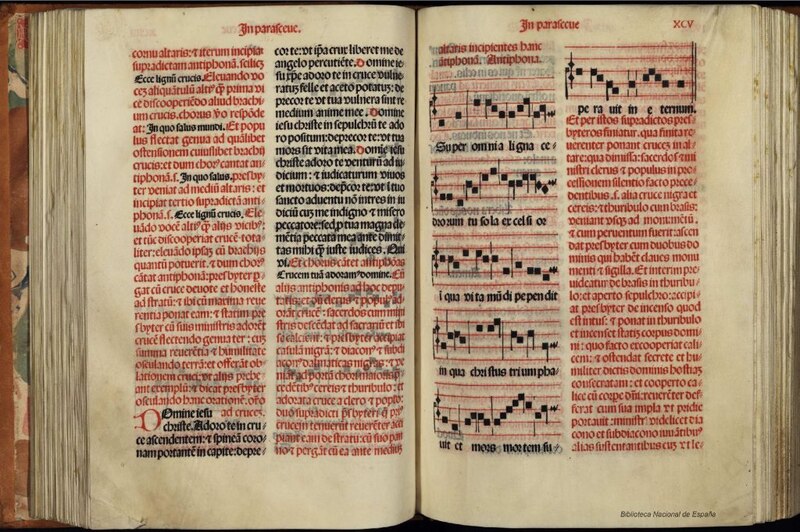 In parasceue.
cornu altaris: ⁊ iterum incipiat
supradictam antiphonā. scilicꝫ
Ecce lignū crucis. Eleuando vo
cem aliquātulū altiꝰ ꝙ̄ prima vi
ce discooperiēdo aliud brachi
um crucis. chorus vo respōde
at: In quo salus mundi. Et popu
lus flectat genua ad quālibet
ostensionem cuiuslibet brachij
crucis: et dum chorꝰ cantat an
tiphonā.s. In quo salus. presby-
ter veniat ad mediū altaris: et
incipiat tertio supradictā anti
phonā.s. Ecce lignū crucis. Ele-
uādo vocē altiꝰ ꝙ̄ aliis vicibꝰ
et tūc discooperiat crucē tota-
liter: eleuādo ipsaꝫ cū brachijs
quantū potuerit. ⁊ dum chorꝰ
cātat antiphonā: presbyter p-
gat cū cruce deuote et honeste
ad stratū: ⁊ ibi cū maxima reue
rentia ponat eam: ⁊ statim pres
byter cū suis ministris adorēt
crucē flectendo genua ter: cuꝫ
summa reuerētia ⁊ humilitate
osculando terrā: et offerāt ob-
lationem cruci: vt aliis prebe
ant exemplū: ⁊ dicat presbyter
osculando hanc orationē. orō
Domine iesu ad cruces.
christe. Adoro te in cru-
ce ascendentem: ⁊ spineā coro-
nam portantē in capite: depre-
cor te: vt ipa crux liberet me de
angelo percutiēte. Domine ie-
su xpe adoro te in cruce vulne
ratus felle et aceto potatus: de
precor te vt tua vulnera sint re
medium anime mee. Domine
iesu christe in sepulchrū te ado
ro positum: deprecor te: vt tua
mors sit vita mea. Domine iesu
christe adoro te venturū ad iu
dicium: ⁊ iudicaturum viuos
et mortuos: depcor te: vt ī tuo
sancto aduentu nō intres in iu
diciū cuꝫ me indigno ⁊ misero
peccatore: sed ꝑ tua magna cle
mētia peccata mea ante dimit-
tas mihi ꝙ̄ iuste iudices. Qui
vi. Et chorus cātet antiphōas
Crucem tuā adoramꝰ domine. Cū
alijs antiphonis ad hoc depu
talis
crucem tenuerit reuerēter acci
piant eam de stratu: cū suo pan
no ⁊ pergāt cū ea ante mediuꝫ
In parasceue
XCV
altaris incipientes hanc
antiphonā. Antiphona.
Super omnia ligna ce-
drorum tu sola excelsi or
i qua vita mūdi pependit
in qua christus triumpha-
uit et mors mortem su-
pe ra uit in e ternum.
Et per istos supradictos pres-
byteros finiatur. qua finita re-
uerenter ponant crucez in al-
tare: qua dimissa: sacerdos ⁊ mi
nistri clerus ⁊ populus in pro
cessionem silentio facto prece-
dentibus .s. alia cruce nigra et
cereis: ⁊ thuribulo cum brasis:
veniant
et cum peruentum fuerit: ascen
dat presbyter cum duobus do
minis qui habent claues monu
menti ⁊ sigilla. Et interim pre
uideatur de brasis in thuribu-
lo: et aperto sepulchro: accipi-
at presbyter de incenso quod
est intus: ⁊ ponat in thuribulo
et incenset statiꝫ corpus domi-
ni: quo facto excooperiat cali-
cem: ⁊ ostendat secrete et hu-
militer dictis dominis hostiaꝫ
consecratam: et cooperto ca-
lice cū corpe dn̄i: reuerēter def
ferat cum sua impla vt pridie
portauit: ministri videlicet dia
cono et subdiacono iuuātibus
alias sustentantibus euꝫ vt le-
Biblioteca Nacional de España